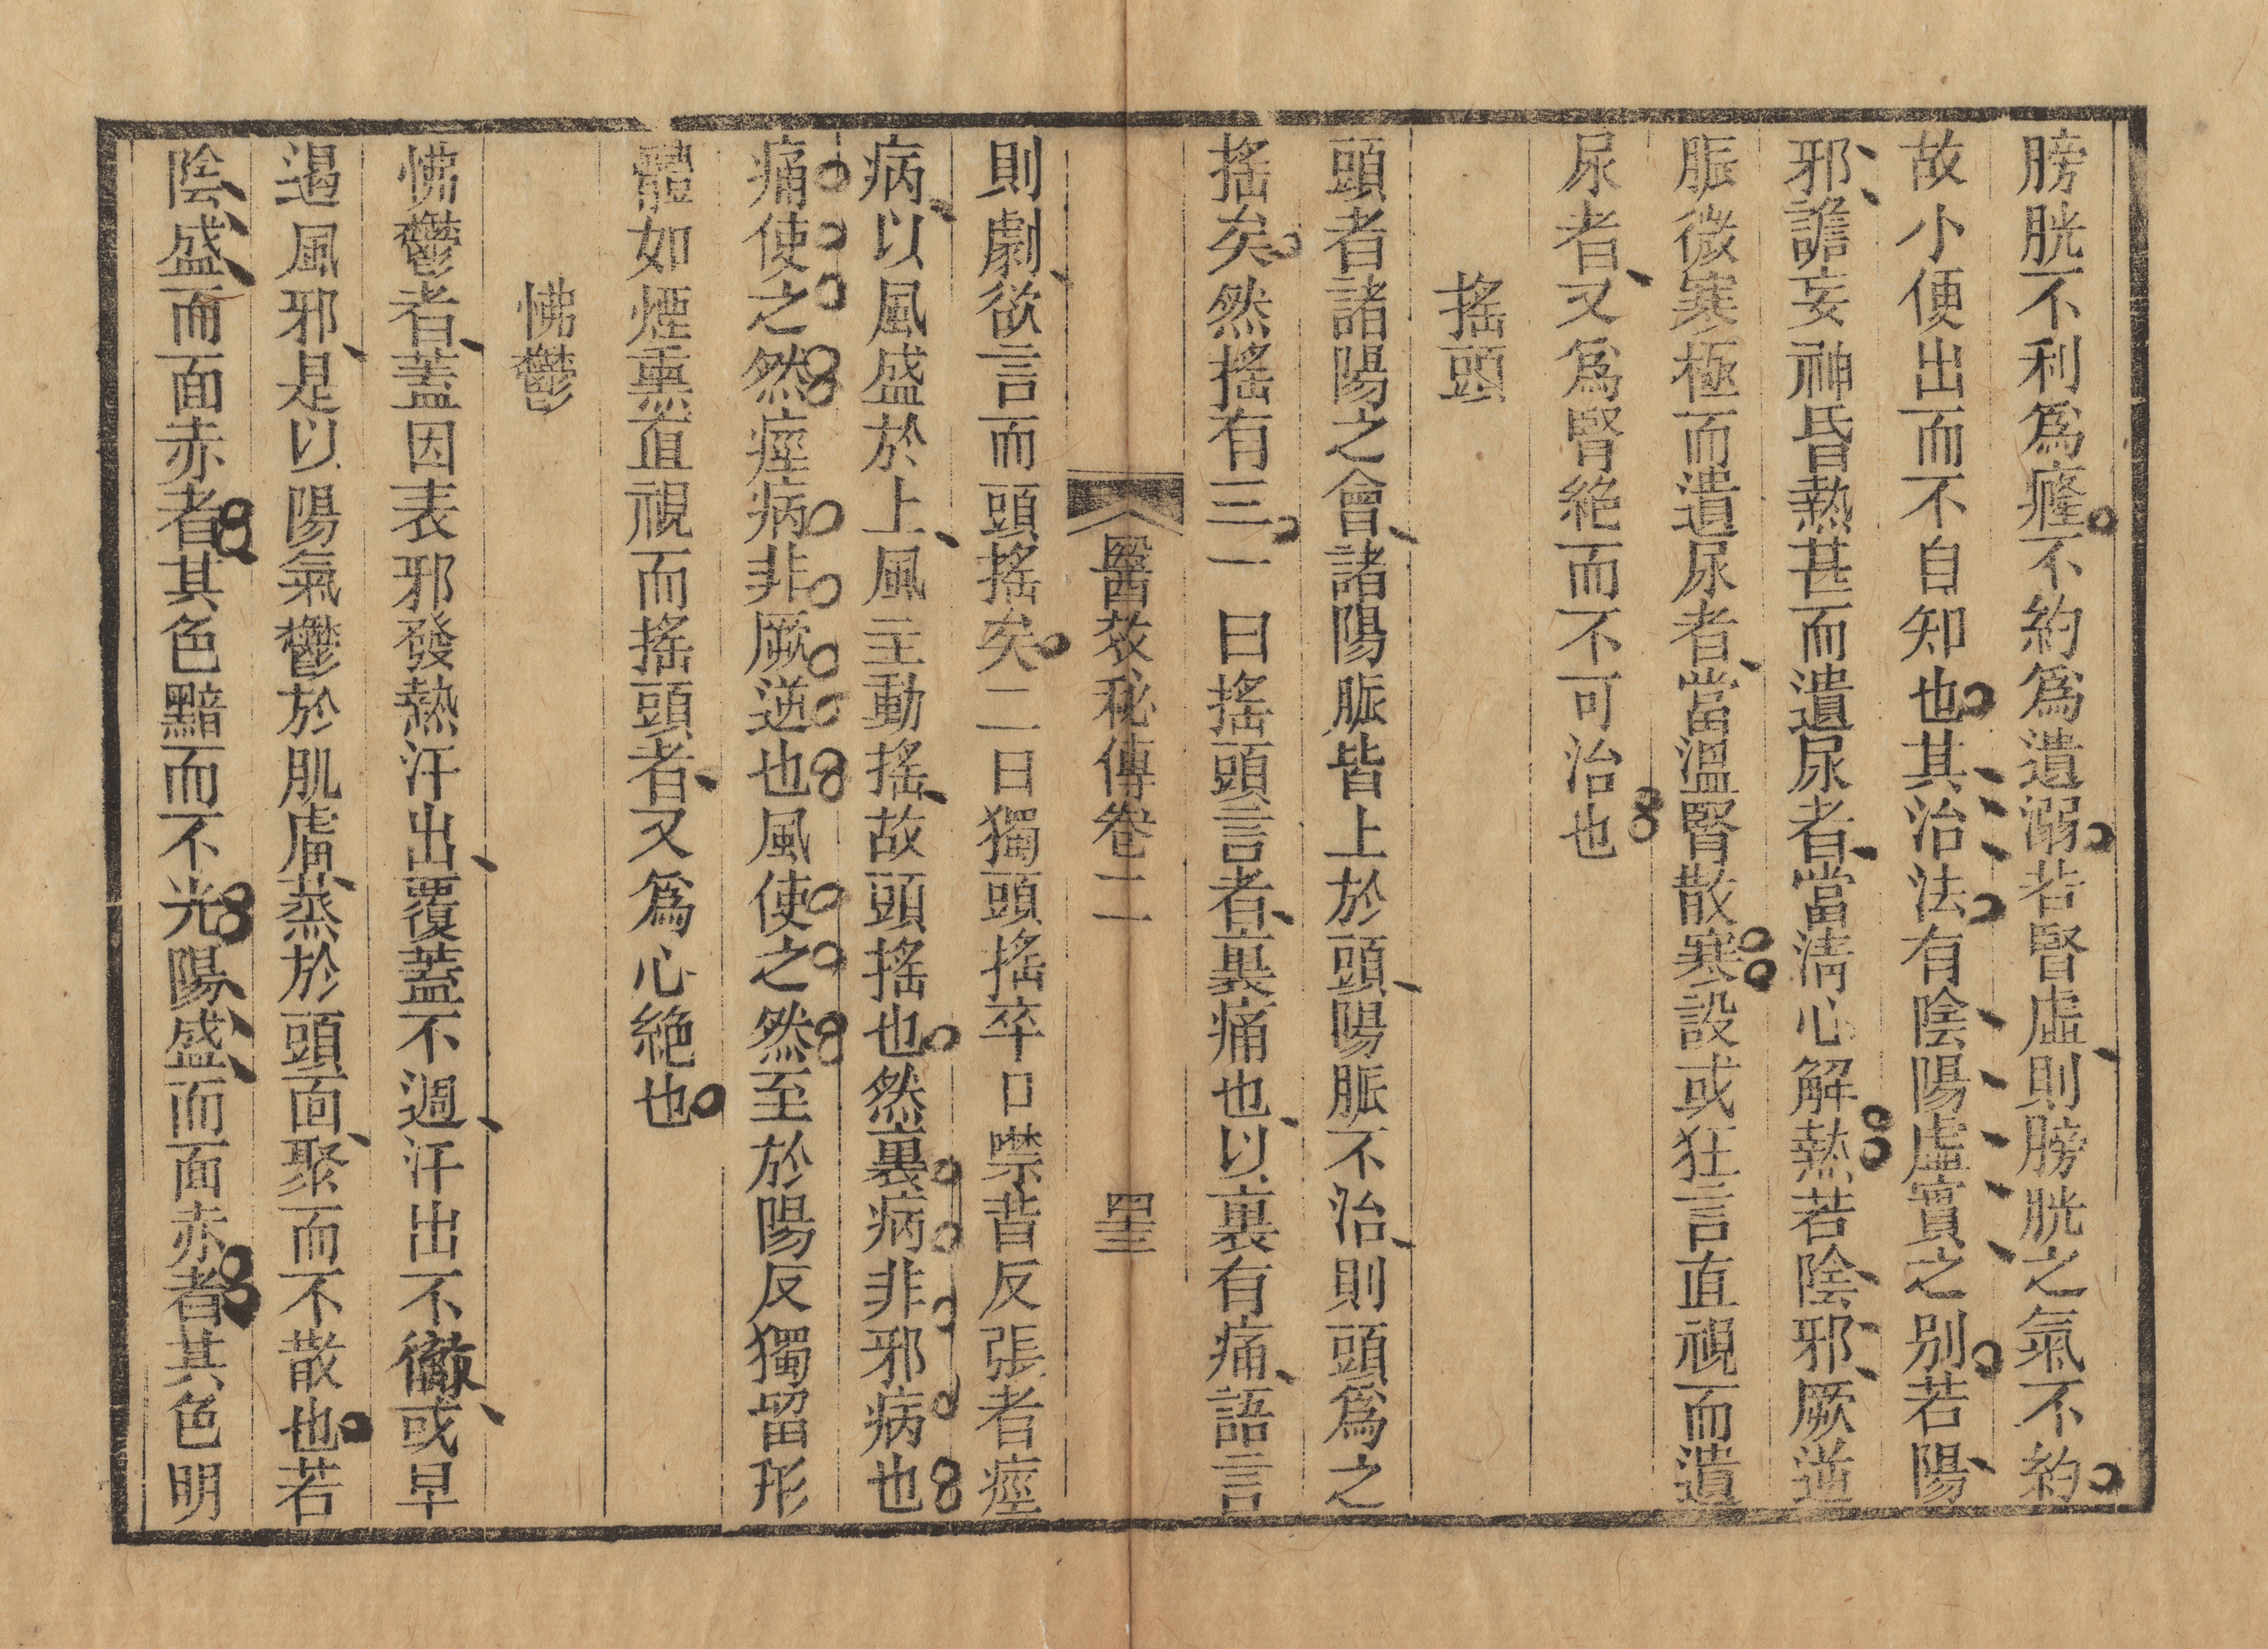 膀胱不利爲癃不約爲遺溺若腎虛則膀胱之氣不約
故小便出而不自知也其治法有陰陽虛實之别若陽
邪譫妄神昏熱甚而遺尿者當清心解熱若陰邪厥逆
脈微寒極而遺尿者當溫腎散寒設或狂言直視而遺
尿者又爲腎絕而不可治也
搖頭
頭者諸陽之會諸陽脈皆上於頭陽脈不治則頭爲之
搖矣然搖有三一曰搖頭言者裏痛也以裏有痛語言
醫效秘傳卷二 四三
則劇欲言而頭搖矣二曰獨頭搖卒口噤背反張者痙
病以風盛於上風主動搖故頭搖也然裏病非邪病也
痛使之然痙病非厥逆也風使之然至於陽反獨留形
體如煙熏直視而搖頭者又爲心絶也
怫鬱
怫鬱者蓋因表邪發熱汗出覆蓋不週汗出不徹或早
遏風邪是以陽氣鬱於肌膚蒸於頭面聚而不散也若
陰盛而面赤者其色黯而不光陽盛而面赤者其色明